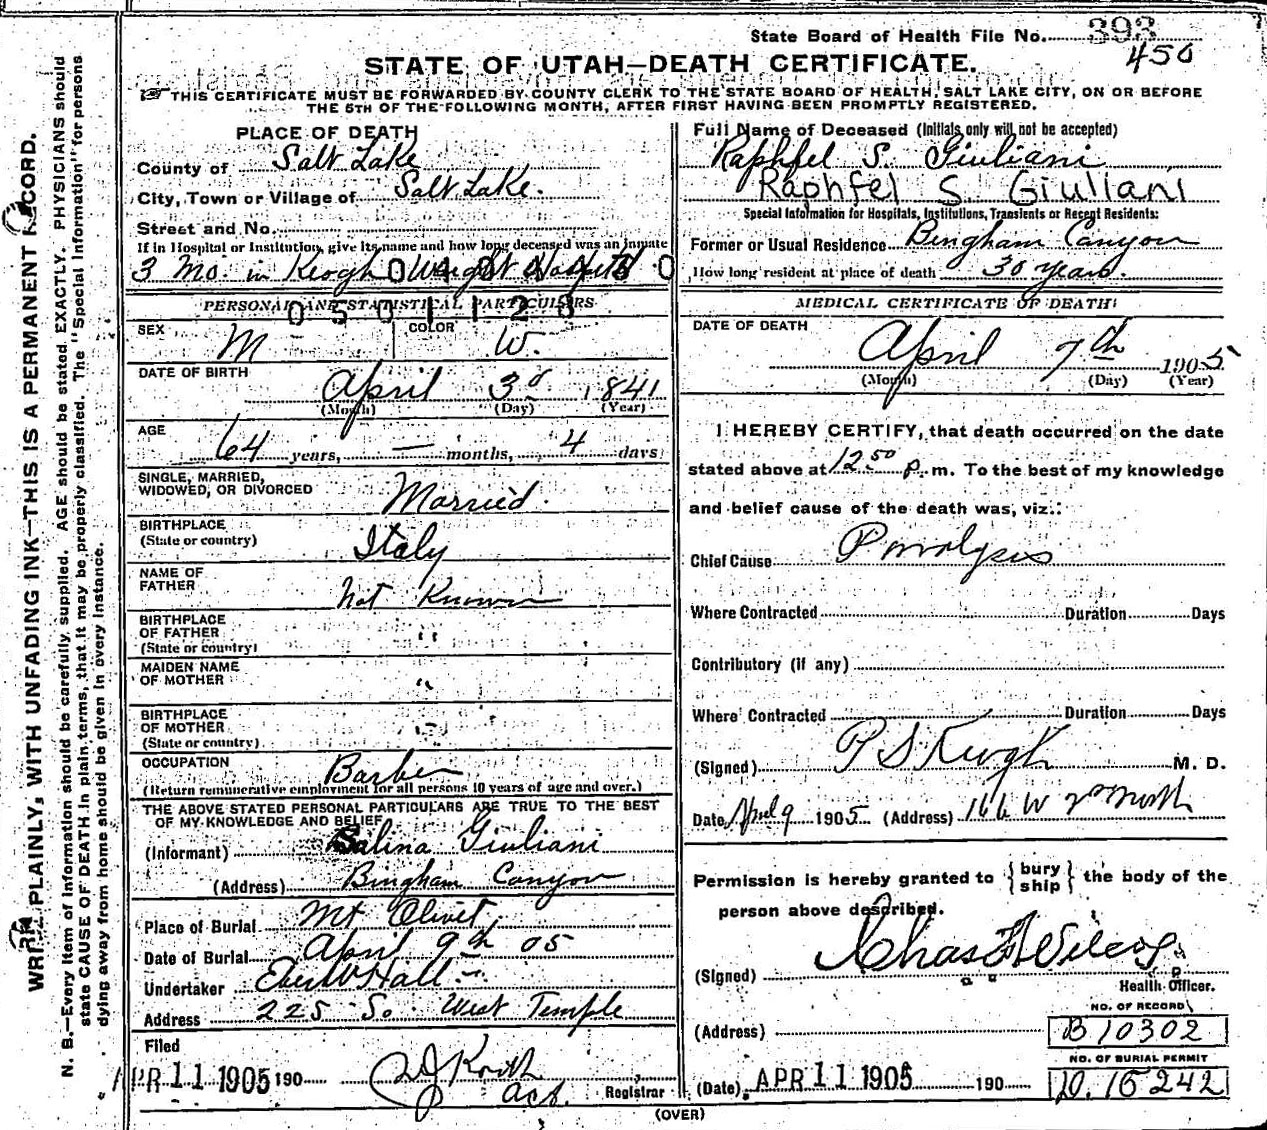 State Board of Health File No. 393
450
STATE OF UTAH—DEATH CERTIFICATE.
THIS CERTIFICATE MUST BE FORWARDED BY COUNTY CLERK TO THE STATE BOARD OF HEALTH, SALT LAKE CITY, ON OR BEFORE
THE 5TH OF THE FOLLOWING MONTH, AFTER FIRST HAVING BEEN PROMPTLY REGISTERED.
WRITE PLAINLY, WITH UNFADING INK—THIS IS A PERMANENT RECORD.
N. B.—Every item of information should be carefully supplied. AGE should be stated EXACTLY. PHYSICIANS should
state CAUSE OF DEATH in plain terms, that it may be properly classified. The "Special Information" for persons
dying away from home should be given in every instance.
PLACE OF DEATH
County of Salt Lake
City, Town or Village of Salt Lake.
Street and No.
If in Hospital or Institution, give its name and how long deceased was an inmate
3 Mo. in Keogh Wright Hospital
PERSONAL AND STATISTICAL PARTICULARS
0501128
SEX M COLOR W.
DATE OF BIRTH April 3d 1841
(Month) (Day) (Year)
AGE 64 years, — months, 4 days
SINGLE, MARRIED,
WIDOWED, OR DIVORCED Married.
BIRTHPLACE
(State or country) Italy
NAME OF
FATHER Not Known
BIRTHPLACE
OF FATHER "
(State or country)
MAIDEN NAME
OF MOTHER "
BIRTHPLACE
OF MOTHER "
(State or country)
OCCUPATION Barber
(Return remunerative employment for all persons 10 years of age and over.)
THE ABOVE STATED PERSONAL PARTICULARS ARE TRUE TO THE BEST
OF MY KNOWLEDGE AND BELIEF
(Informant) Salina Giuliani
(Address) Bingham Canyon
Place of Burial Mt Olivet
Date of Burial April 9th 05
Undertaker Eber W Hall
Address 225 So. West Temple
Filed
APR 11 1905 190
Act. Registrar
Full Name of Deceased (Initials only will not be accepted)
Raphfel S. Giuliani
Raphfel S Giuliani
Special Information for Hospitals, Institutions, Transients or Recent Residents:
Former or Usual Residence Bingham Canyon
How long resident at place of death 30 years.
MEDICAL CERTIFICATE OF DEATH
DATE OF DEATH
April 7th 1905
(Month) (Day) (Year)
I HEREBY CERTIFY, that death occurred on the date
stated above at 12 50 P. m. To the best of my knowledge
and belief cause of the death was, viz.:
Chief Cause Paralysis
Where Contracted Duration Days
Contributory (if any)
Where Contracted Duration Days
(Signed) P S Keogh M. D.
Date April 9 1905 (Address) 166 W 2nd North
Permission is hereby granted to { bury
ship } the body of the
person above described.
(Signed) Chas F Wilcox
Health Officer.
(Address)
NO. OF RECORD
B 10302
NO. OF BURIAL PERMIT
D. 15242
(Date) APR 11 1905 190
(OVER)